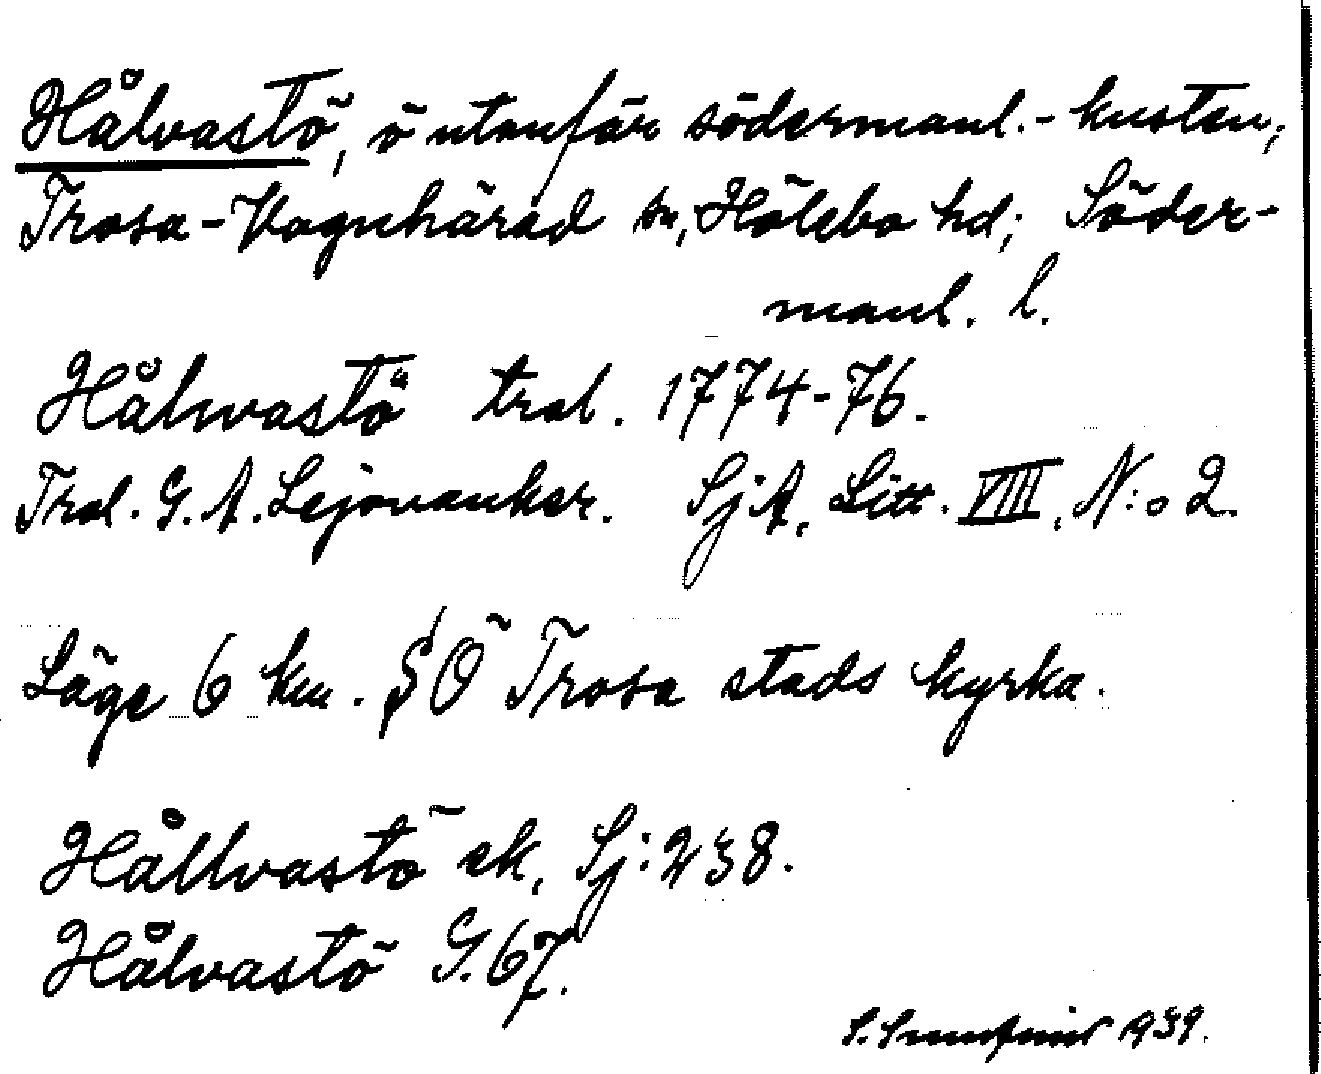 Hålvastö, ö utanför södermanl.-kusten,
Trosa-Vagnhärad sn, Hölebo hd; Söder-
manl. l.
Hålwastö trol. 1774-76.
Trol. G. A. Lejonanker. SjA, Litt. VIII, N:o 2.
Läge 6 km. SÖ Trosa stads kyrka.
Hållvastö ek, Sj:238.
Hålvastö G.67.
S. 1939.